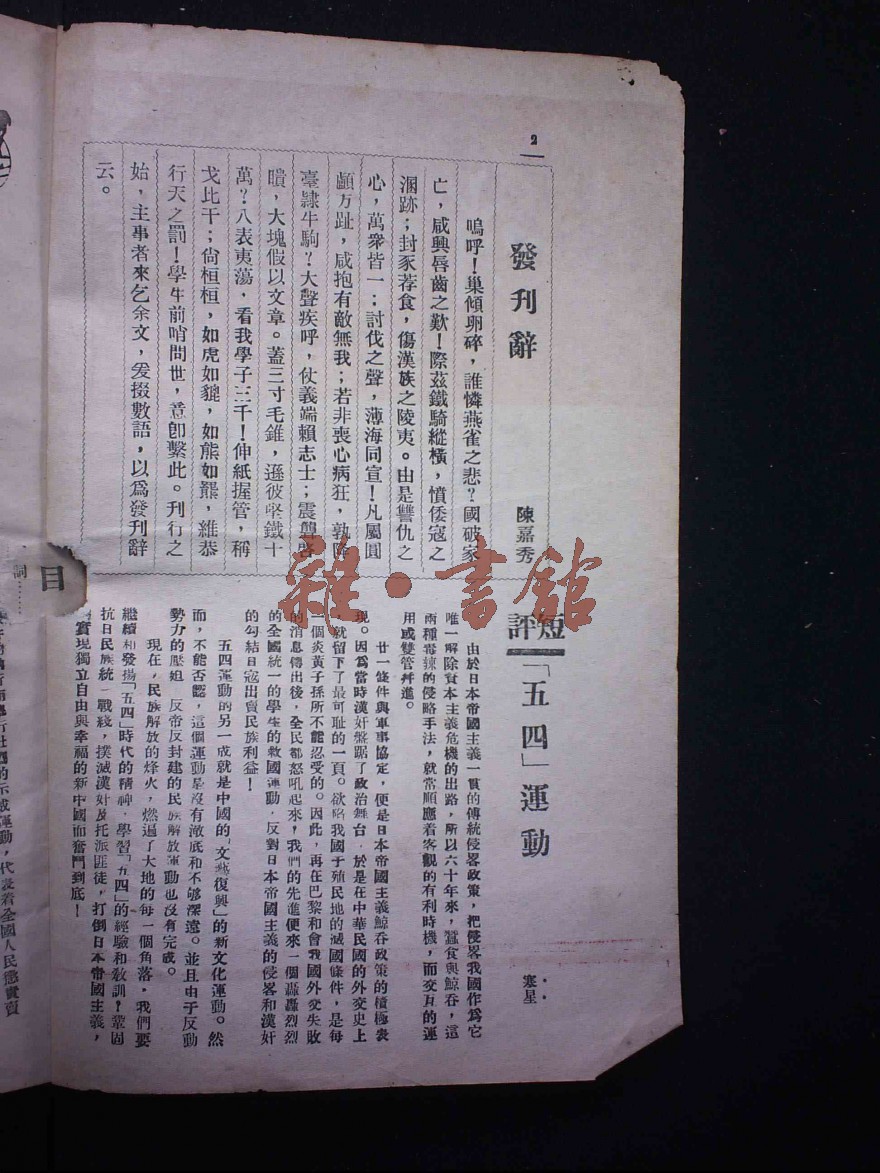 2
發刊辭
陳嘉秀
嗚呼！巢傾卵碎，誰憐燕雀之悲？國破家
亡，咸興唇齒之歎！際茲鐵騎縱橫，憤倭寇之
溷跡；封豕荐食，傷漢族之陵夷。由是讐仇之
心，萬衆皆一；討伐之聲，薄海同宣！凡屬圓
顱方趾，咸抱有敵無我；若非喪心病狂，孰降
臺隷牛駒？大聲疾呼，仗義端賴志士；震聾啓
聵，大塊假以文章。蓋三寸毛錐，遜彼堅鐵十
萬？八表夷蕩，看我學子三千！伸紙握管，稱
戈比干；尙桓桓，如虎如貔，如熊如羆，維恭
行天之罰！學生前哨問世，意卽繫此。刊行之
始，主事者來乞余文，爰掇數語，以爲發刊辭
云。
短評
「五四」運動
寒星
由於日本帝國主義一貫的傳統侵畧政策，把侵畧我國作爲它
唯一解除資本主義危機的出路，所以六十年來，蠶食與鯨吞，這
兩種毒辣的侵略手法，就常順應着客觀的有利時機，而交互的運
用或雙管幷進。
廿一條件與軍事協定，便是日本帝國主義鯨吞政策的積極表
現。因爲當時漢奸盤踞了政治舞台，於是在中華民國的外交史上
，就留下了最可耻的一頁。欲略我國于殖民地的滅國條件，是每
一個炎黃子孫所不能忍受的。因此，再在巴黎和會我國外交失敗
的消息傳出後，全民都怒吼起來，我們的先進便來一個轟轟烈烈
的全國統一的學生的救國運動，反對日本帝國主義的侵畧和漢奸
的勾結日寇出賣民族利益！
五四運動的另一成就是中國的「文藝復興」的新文化運動。然
而，不能否認，這個運動是沒有澈底和不够深遠。並且由于反動
勢力的壓迫 反帝反封建的民族解放運動也沒有完成。
現在，民族解放的烽火，燃遍了大地的每一個角落，我們要
繼續和發揚「五四」時代的精神，學習「五四」的經驗和敎訓！鞏固
抗日民族統一戰綫，撲滅漢奸及托派匪徒，打倒日本帝國主義，
實現獨立自由與幸福的新中國而奮鬥到底！
目
詞……
示威運動，代表着全國人民懲賣賣
雜·書館